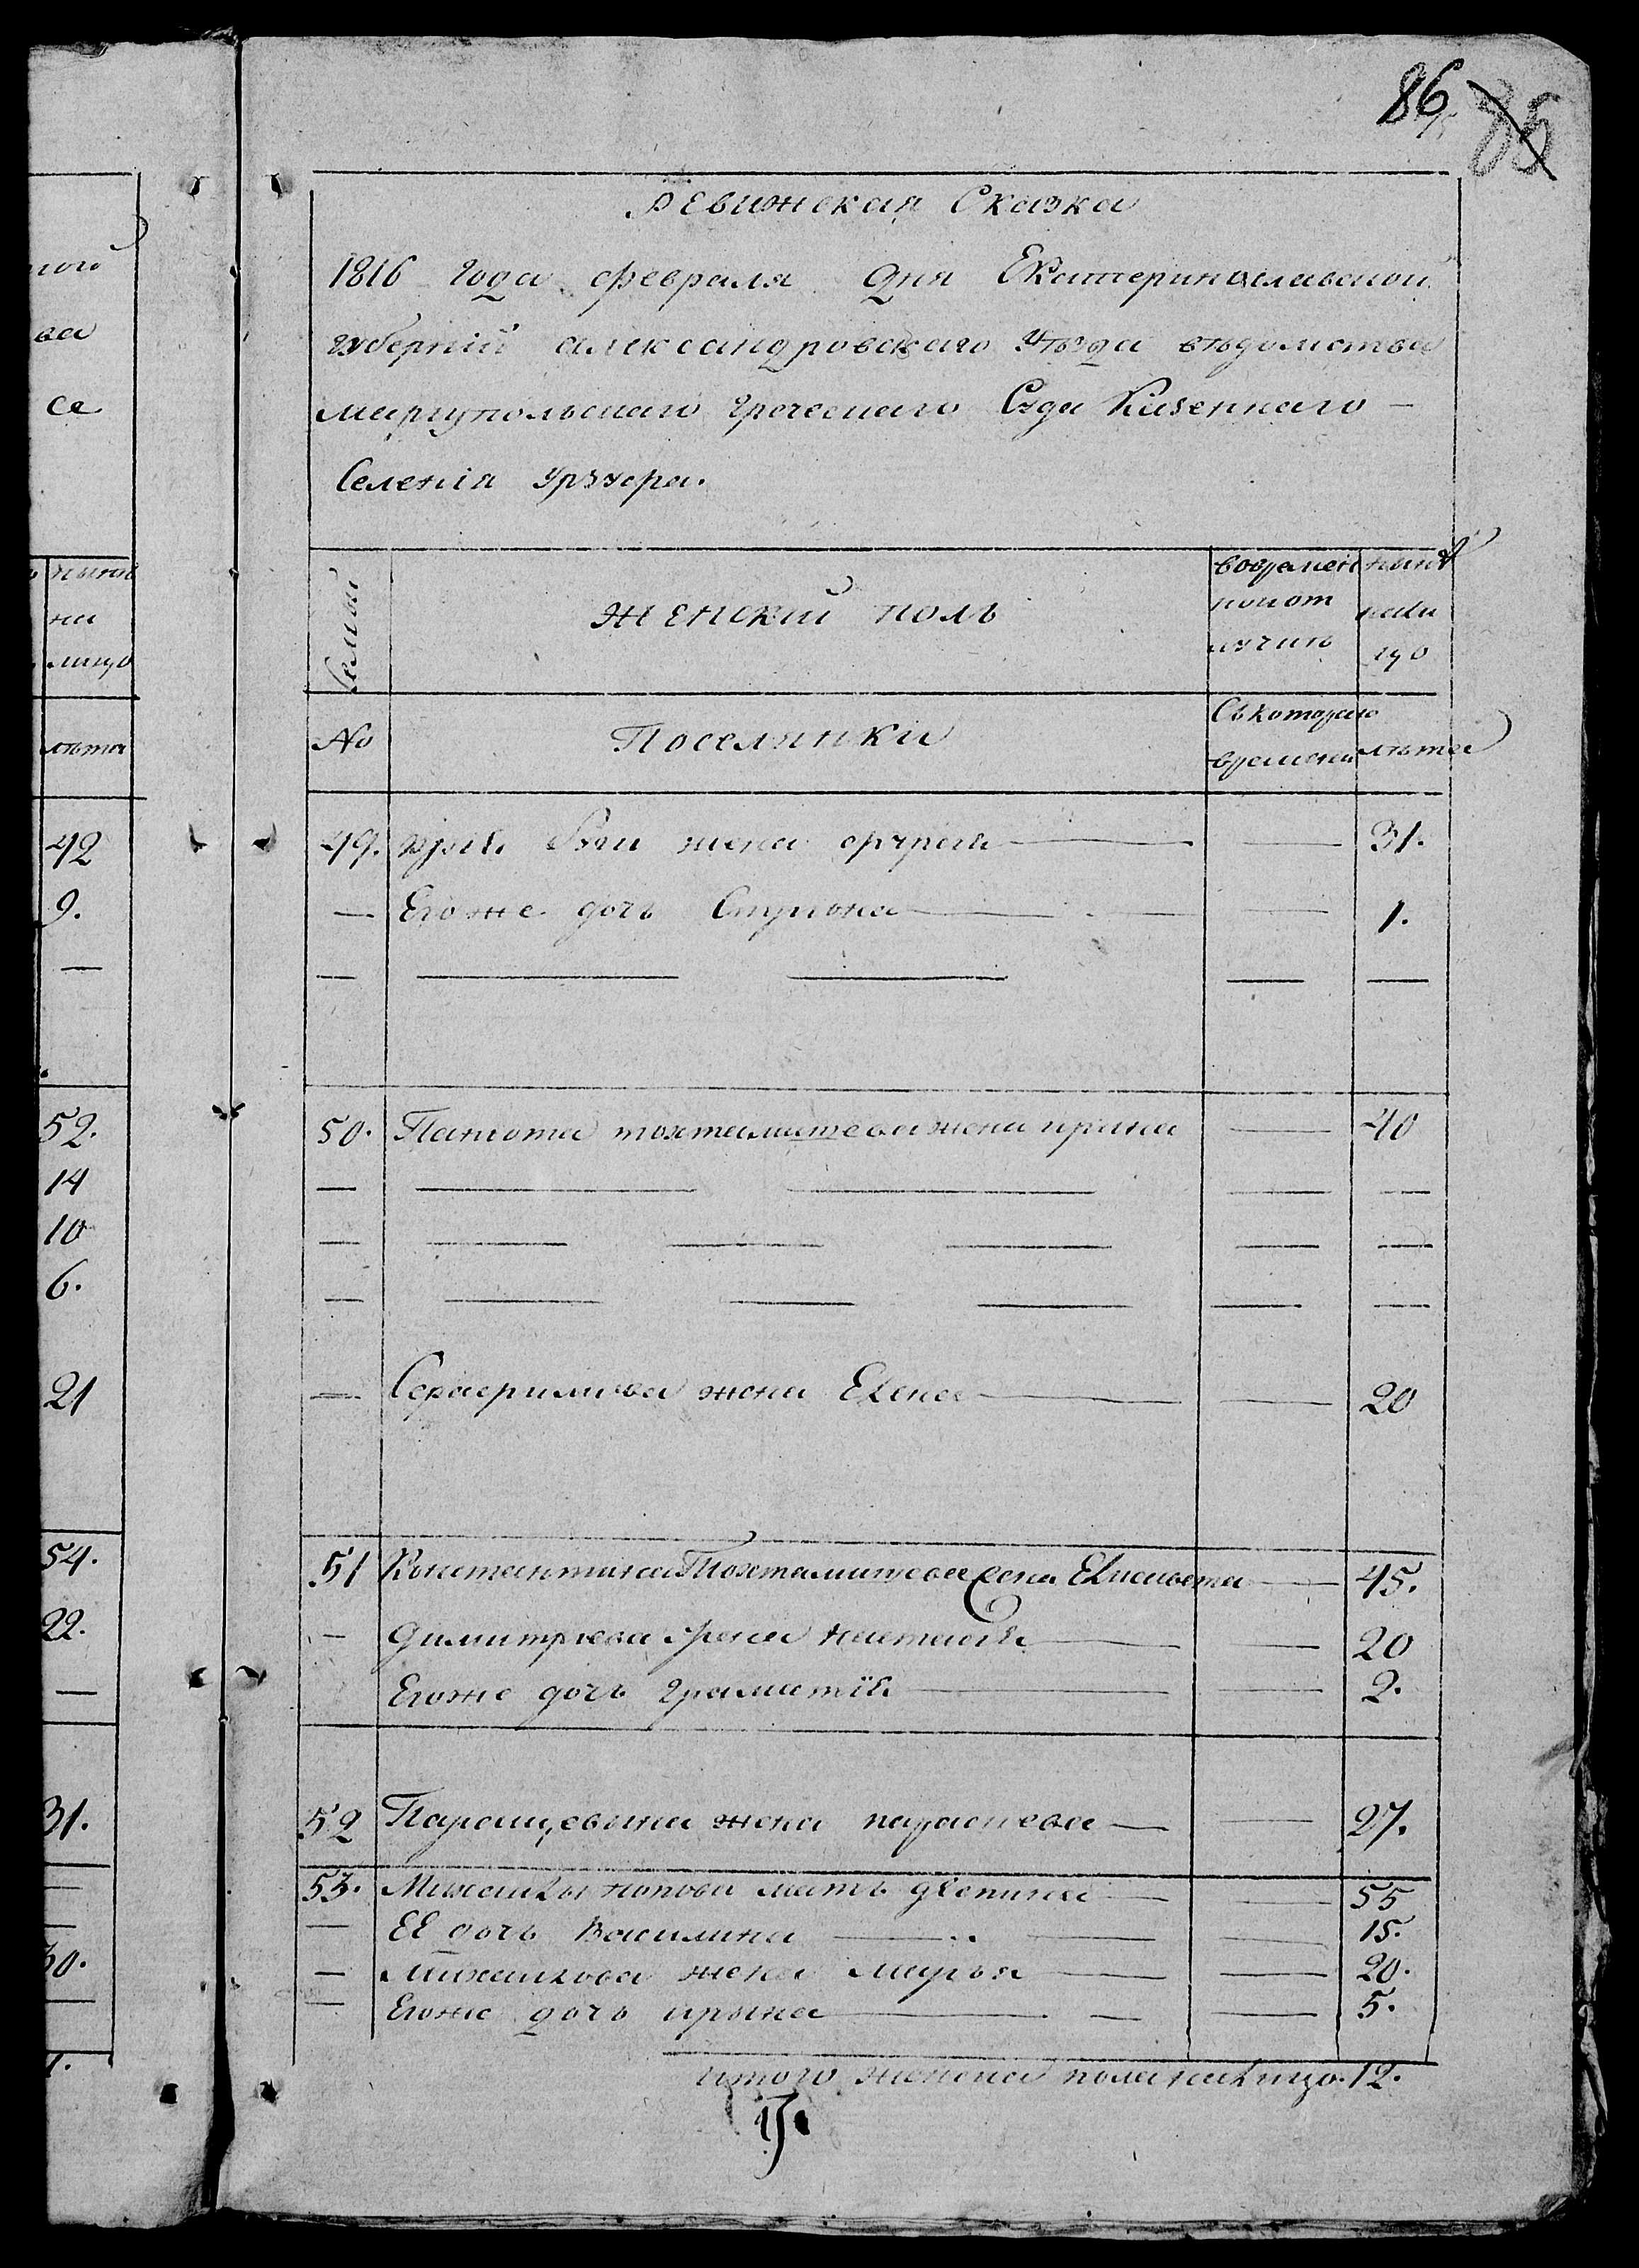 86
85
ревижская Сказка
1816 года февраля дня Екатеринославской
губерніи александровского уѣзда вѣдомства
мариупольскаго греческаго Суда Казеннаго —
Селенія Урзуфа.
Семьи
женский полъ
вовремен
ной от
лучки
нынѣ
нали
цо
№
Поселянки
Съ котораго
времени
лѣта
49. жена — — 31.
— Егоже дочь — — 1.
— — — — —
50. Панаiота тохтамишева жена ирина — 40
— — — — —
— — — — — —
— — — — — —
— Серафимова жена Елена — — 20
51 Константина Тохтамишева жена Елисавета — 45.
— димитриева жена — — 20
Егоже дочь — — 2.
52 жена параскева — — 27.
53. Михайлы попова мать — — 55
— ЕЕ дочь Василина — — — 15.
— михайлова жена марья — — 20.
— Егоже дочь ирына — — — 5.
итого женска пола налицо. 12.
42
9.
—
52.
14
10
6.
21
54.
22.
—
31.
—
—
30.
—